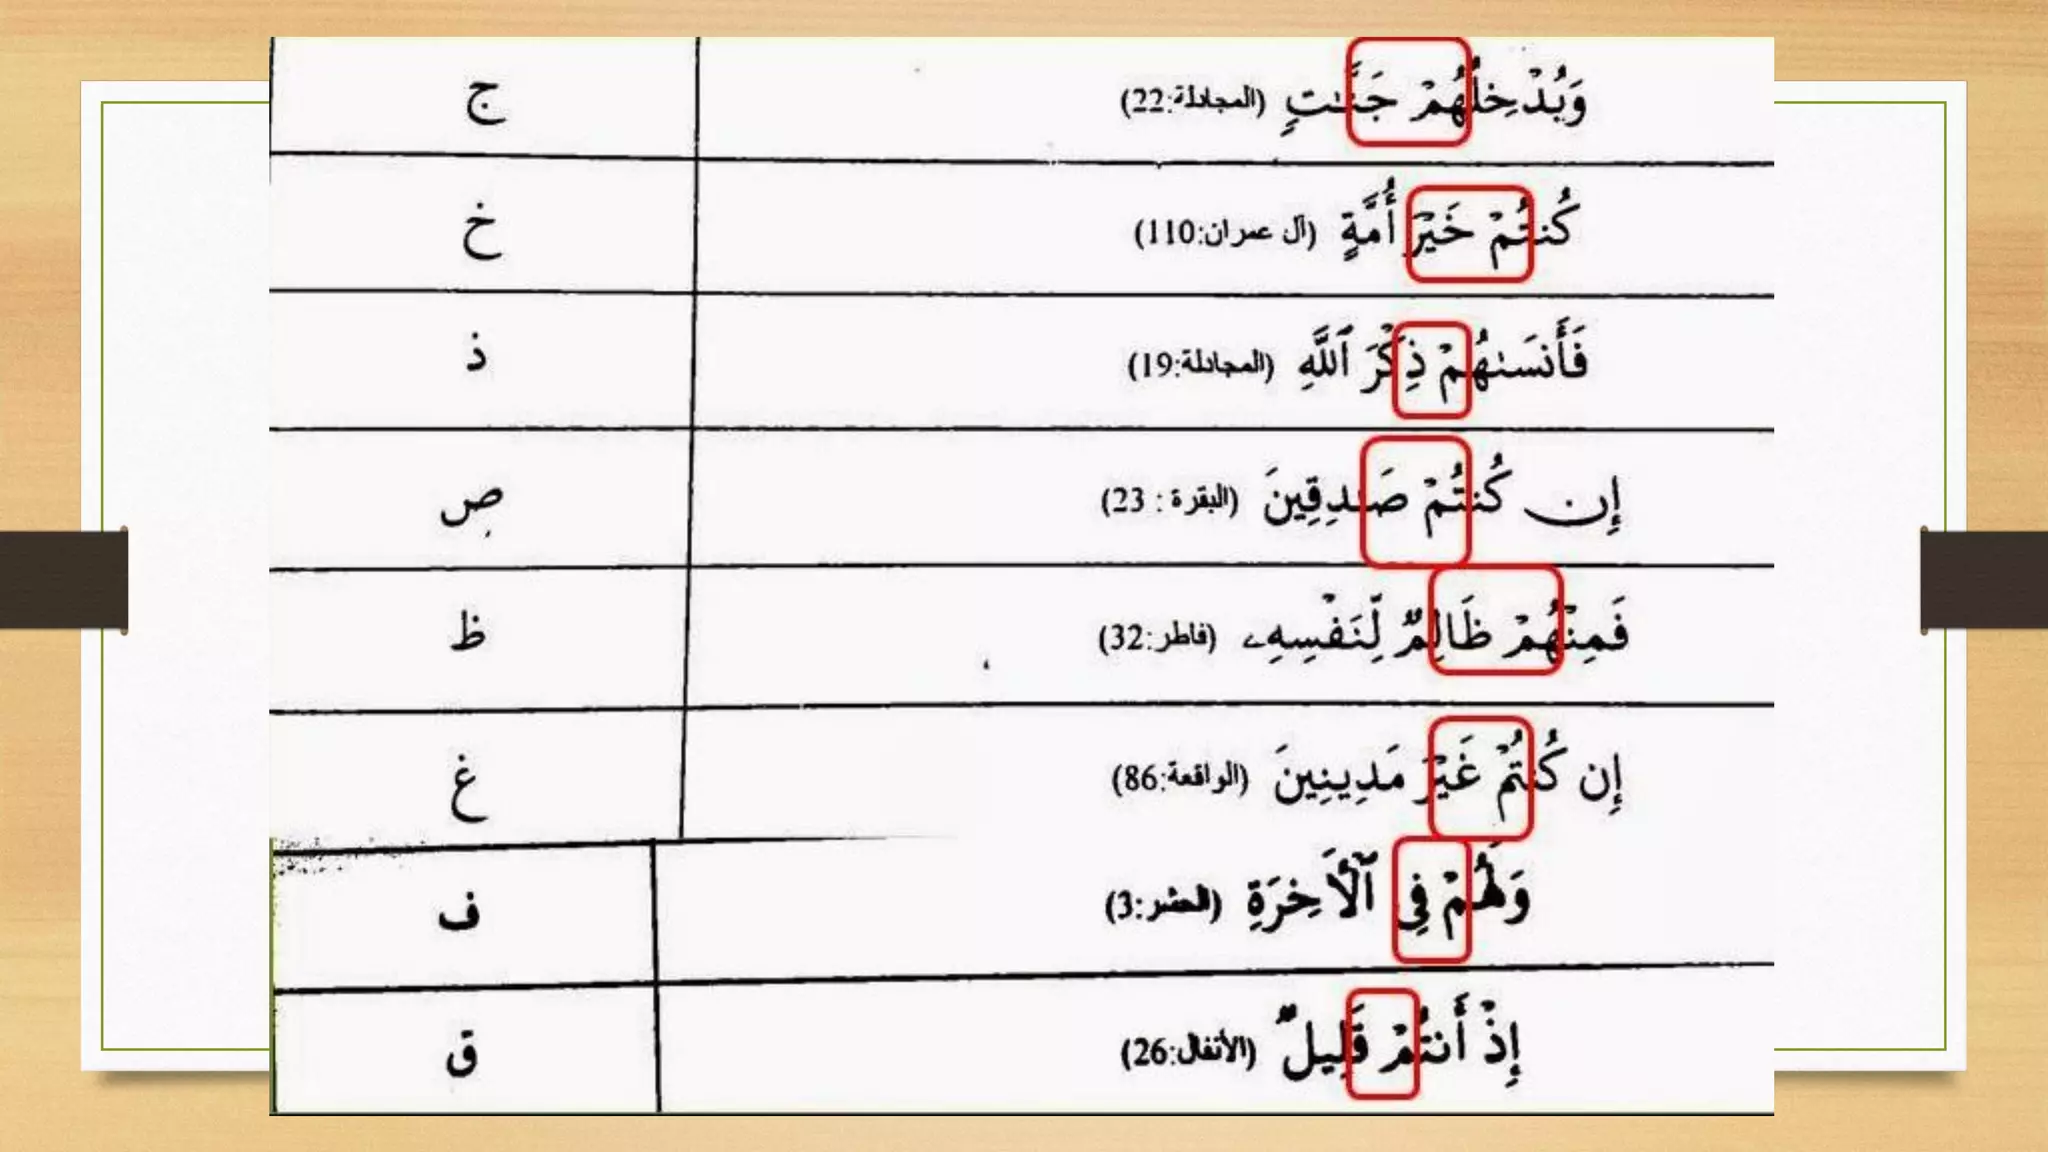 وَيُدْخِلُهُمْ جَنَّـٰتٍ (المجادلة:22) ج
كُنتُمْ خَيْرَ أُمَّةٍ (آل عمران:110) خ
فَأَنسَىٰهُمْ ذِكْرَ ٱللَّهِ (المجادلة:19) ذ
إِن كُنتُمْ صَـٰدِقِينَ (البقرة : 23) ص
فَمِنْهُمْ ظَالِمٌ لِّنَفْسِهِۦ (فاطر:32) ظ
إِن كُنتُمْ غَيْرَ مَدِينِينَ (الواقعة:86) غ
وَلَهُمْ فِى ٱلْآَخِرَةِ (الحشر:3) ف
إِذْ أَنتُمْ قَلِيلٌ (الأنفال:26) ق